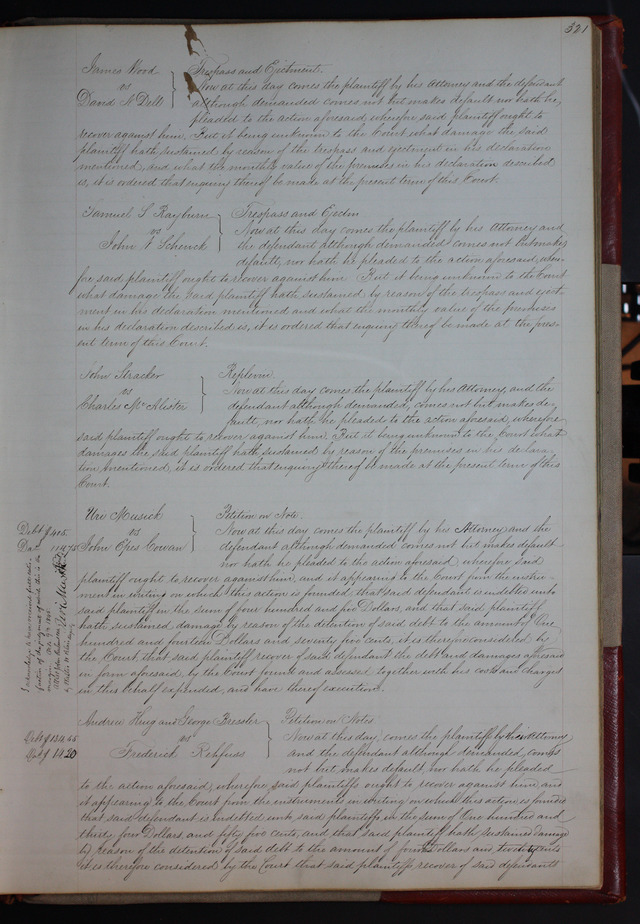 321
James Wood
vs
David N Dell
Trespass and Ejectment.
Now at this day comes the plaintiff by his Attorney and the defendant
although demanded comes not but makes default nor hath he
pleaded to the action aforesaid, wherefore said plaintiff ought to
recover against him, But it being unknown to the Court what damage the said
plaintiff hath sustained by reason of the trespass and ejectment in his declaration
mentioned, and what the monthly value of the premises in his declaration described
is, it is ordered that enquiry thereof be made at the present term of this Court.
Samuel S Rayburn
vs
John V Schenck
Trespass and Ejectm
Now at this day comes the plaintiff by his Attorney and
the defendant although demanded comes not but makes
default, nor hath he pleaded to the action aforesaid, where-
fore said plaintiff ought to recover against him. But it being unknown to the Court
what damage the said plaintiff hath sustained by reason of the trespass and eject-
ment in his declaration mentioned and what the monthly value of the premises
in his declaration described is, it is ordered that enquiry thereof be made at the pres-
ent term of this Court.
John Stracker
vs
Charles McAlister
Replevin
Now at this day comes the plaintiff by his Attorney, and the
defendant although demanded, comes not but makes de-
fault, nor hath he pleaded to the action aforesaid, wherefore
said plaintiff ought to recover against him. But it being unknown to the Court what
damages the said plaintiff hath sustained by reason of the premises in his declara-
tion mentioned, it is ordered that enquiry thereof be made at the present term of this
Court.
Uri Musick
vs
John Opes Cowan
Petition on Note.
Now at this day comes the plaintiff by his Attorney and the
defendant although demanded comes not but makes default
nor hath he pleaded to the action aforesaid, wherefore said
Debt $405.
Da 114.75
plaintiff ought to recover against him, and it appearing to the Court from the instru-
ment in writing on which this action is founded that said defendant is indebted unto
said plaintiff in the sum of four hundred and five Dollars, and that said plaintiff
hath sustained damage by reason of the detention of said debt to the amount of One
hundred and fourteen Dollars and seventy five cents, it is therefore considered by
the Court that said plaintiff recover of said defendant the debt and damages aforesaid
in form aforesaid by the Court found and assessed together with his costs and charges
in this behalf expended, and have thereof execution.
Andrew King and George Bressler
vs
Frederick Rehfuss
Petition on Notes
Now at this day comes the plaintiff by their Attorney
and the defendant although demanded, comes
not but makes default, nor hath he pleaded
Debt $134.55
14.20
to the action aforesaid, wherefore said plaintiffs ought to recover against him, and
it appearing to the Court from the instruments in writing on which this action is founded
that said defendant is indebted unto said plaintiffs in the sum of One hundred and
thirty four Dollars and fifty five cents, and that said plaintiff hath sustained damage
by reason of the detention of said debt to the amount of fourteen Dollars and twenty cents
it is therefore considered by the Court that said plaintiffs recover of said defendants